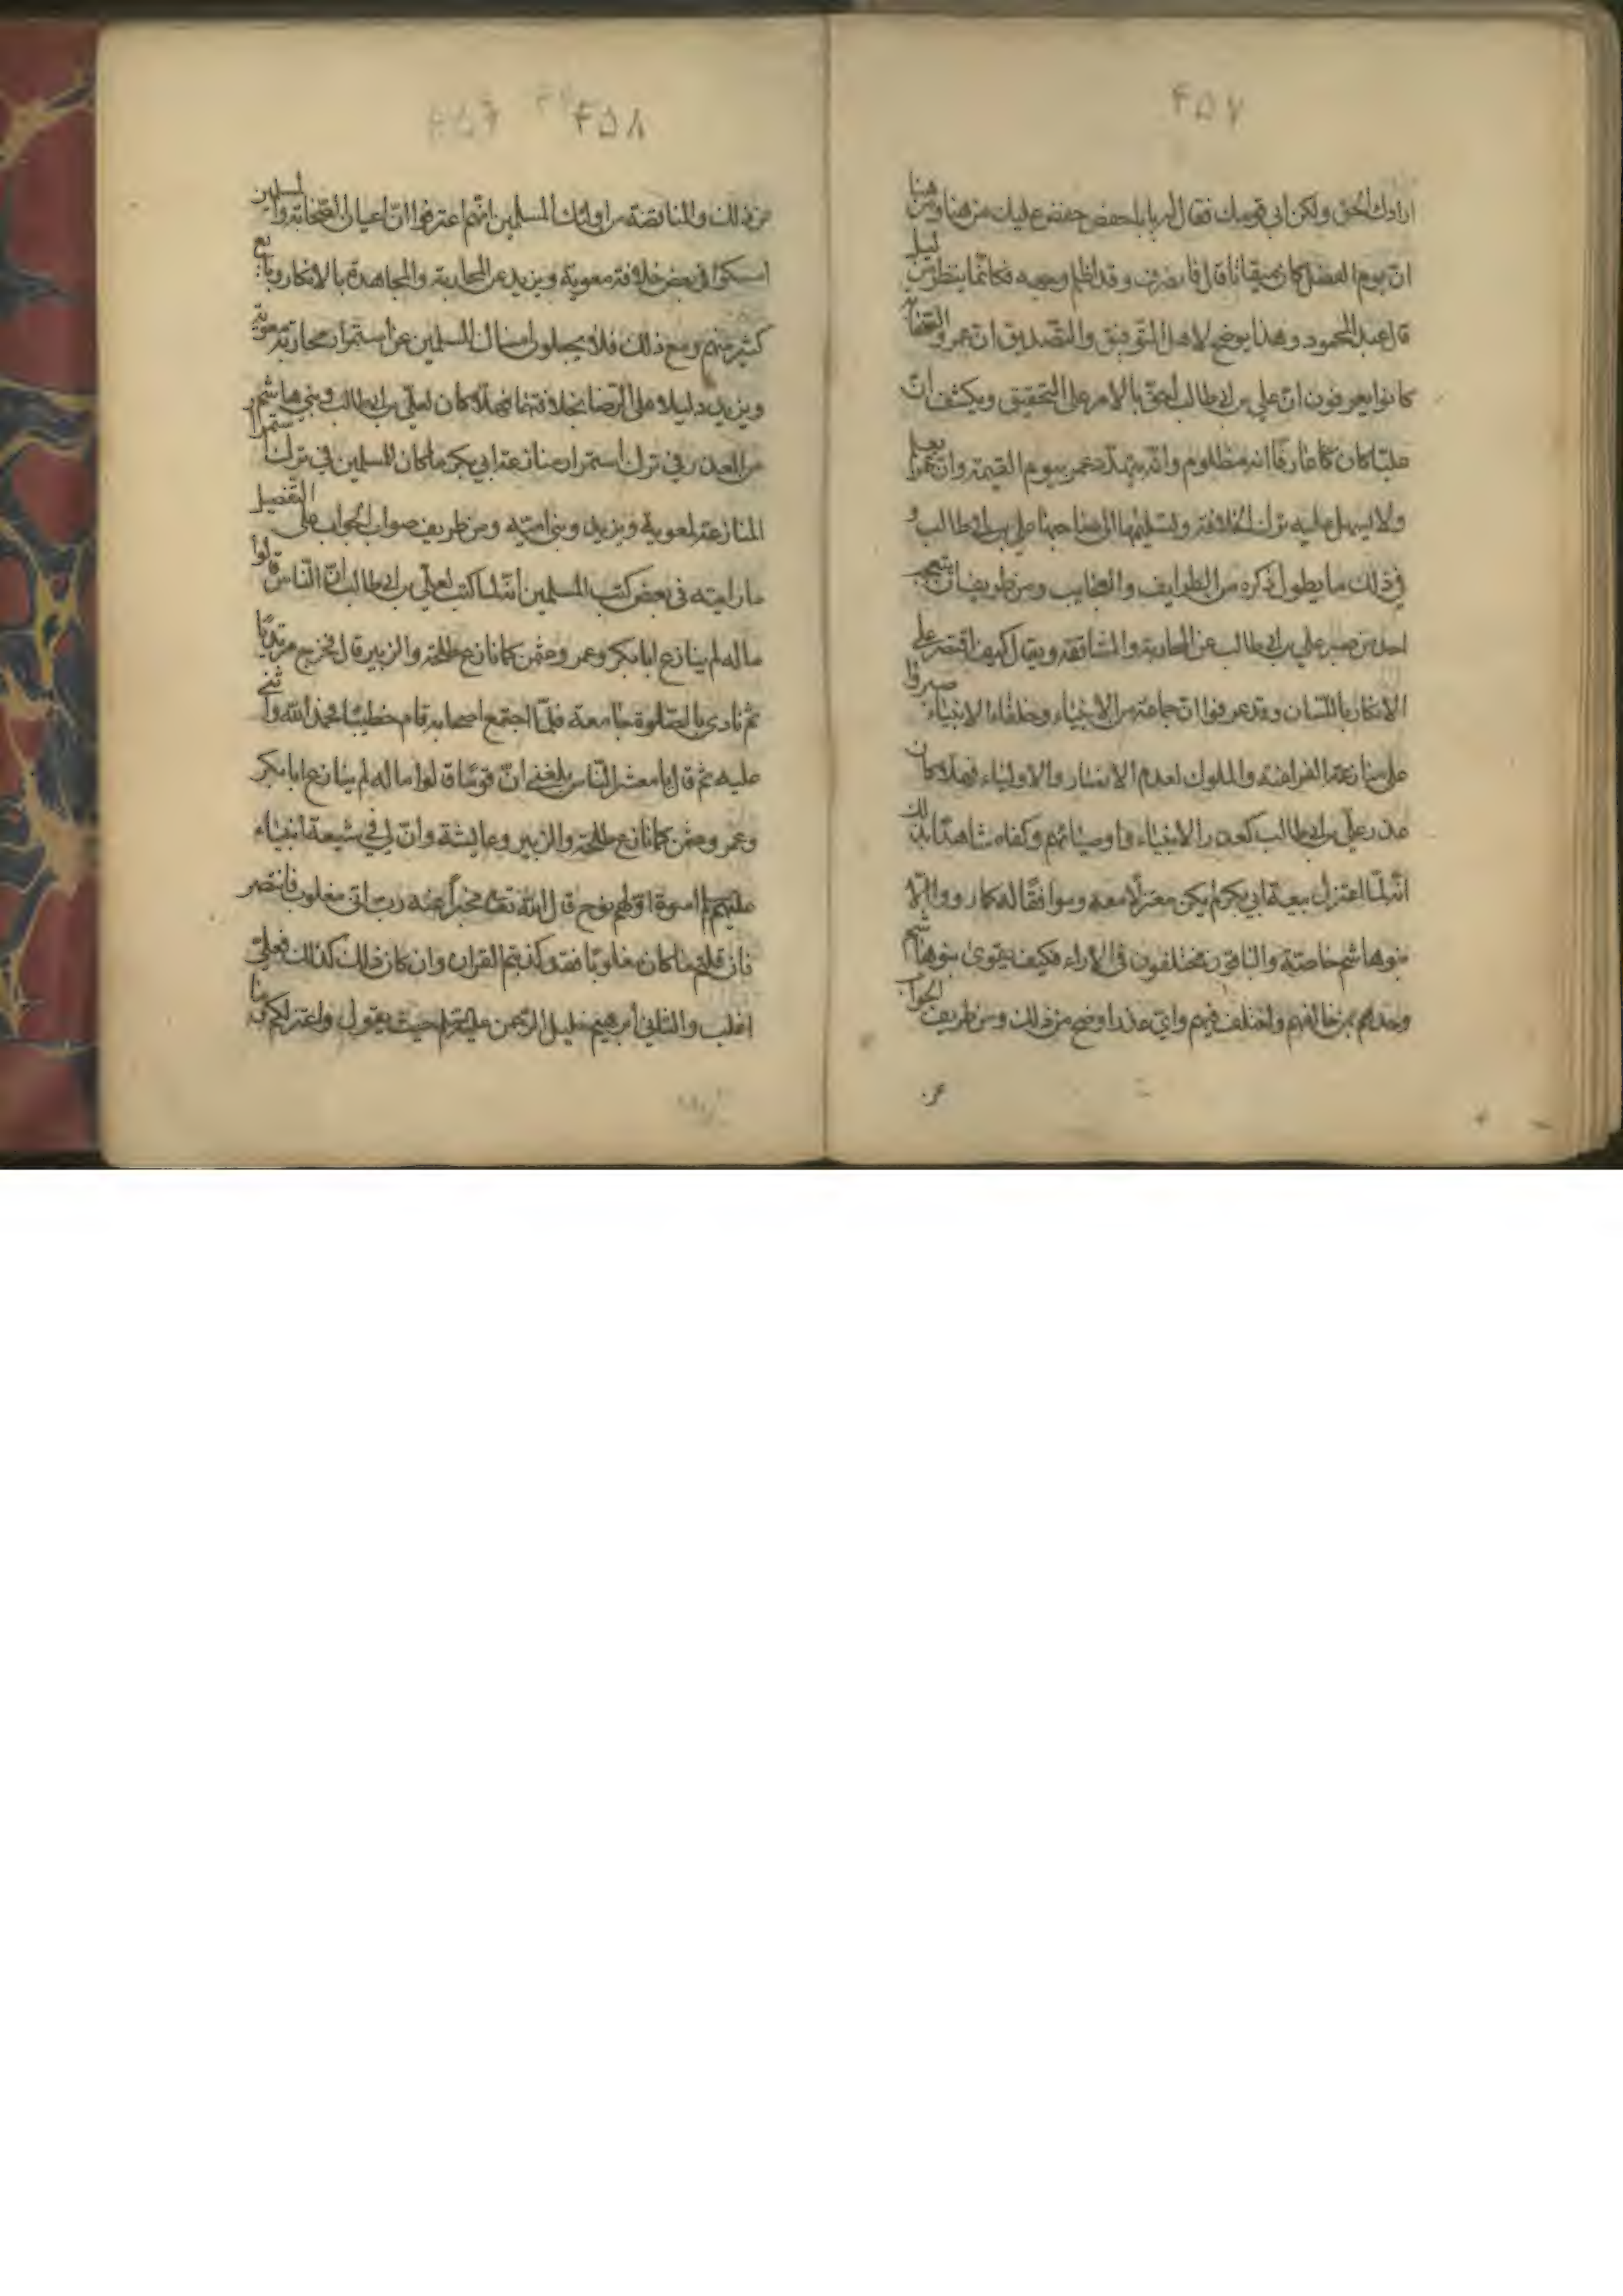 ۴۵۷
ارادك الحق ولكن ابى قومك فقال له يا ابا حفص خفض عليك من هنا ومن هنا
ان يوم الفصل كان ميقاتا قال فانصرف وقد اظلم وجهه فكانما ينظر من ليل
قال عبد المحمود وهذا يوضح لاهل التوفيق والتصديق ان عمر والصحابة
كانوا يعرفون ان علي بن ابي طالب احق بالامر على التحقيق ويكشف ان
عليا كان عارفا انه مظلوم وانه يتهدد عمر بيوم القيمة وان عمر يعلم
ولا يسهل عليه ترك الخلافة وتسليمها الى صاحبها علي بن ابي طالب و
في ذلك ما يطول ذكره من الطرايف والعجايب ومن طريف ان يتعجب
احد من صبر علي بن ابي طالب عن المحاربة والمشاققة ويقال كيف اقتصر على
الانكار باللسان وقد عرفوا ان جماعة من الانبياء وخلفاء الانبياء صبروا
على منازعة الفراعنة والملوك لعدم الانصار والاولياء فهلا كان
عذر علي بن ابي طالب كعذر الانبياء واوصيائهم وكفاه شاهدا بذلك
انه لما اعتزل بيعة ابي بكر لم يكن معتزلا معه وموافقا له كما رووا الا
بنو هاشم خاصة والباقون مختلفون في الاراء فكيف يقوى بنو هاشم
وحدهم بمن خالفهم واختلف فيهم واي عذر اوضح من ذلك ومن طريف الجواب
عن
۴۵۸
عن ذلك والمناقضة من اولئك المسلمين انهم اعترفوا ان اعيان الصحابة والمسلمين
امسكوا في بعض خلافة معوية ويزيد عن المحاربة والمجاهدة بالانكار وبايع
كثير منهم ومع ذلك فلا يجعلون امساك المسلمين عن استمرار محاربة معوية
ويزيد دليلا على الرضا بخلافتهما فهلا كان لعلي بن ابي طالب وبني هاشم
من العذر في ترك استمرار منازعة ابي بكر ما كان للمسلمين في ترك استمرار
المنازعة لمعوية ويزيد وبني امية ومن طريف صواب الجواب على التفصيل
ما رايته في بعض كتب المسلمين انه لما كتب لعلي بن ابي طالب ان الناس قالوا
ما له لم ينازع ابا بكر وعمر وعثمن كما نازع طلحة والزبير قال فخرج مرتديا
ثم نادى بالصلوة جامعة فلما اجتمع اصحابه قام خطيبا فحمد الله واثنى
عليه ثم قال يا معشر الناس بلغني ان قوما قالوا ما له لم ينازع ابا بكر
وعمر وعثمن كما نازع طلحة والزبير وعايشة وان لي في سبعة انبياء
عليهم السلام اسوة اولهم نوح قال الله تعالى مخبرا عنه رب اني مغلوب فانتصر
فان قلتم ما كان مغلوبا فقد كذبتم القران وان كان ذلك كذلك فعلي
اغلب والثاني ابرهيم خليل الرحمن عليه السلام حيث يقول واعتزلكم وما